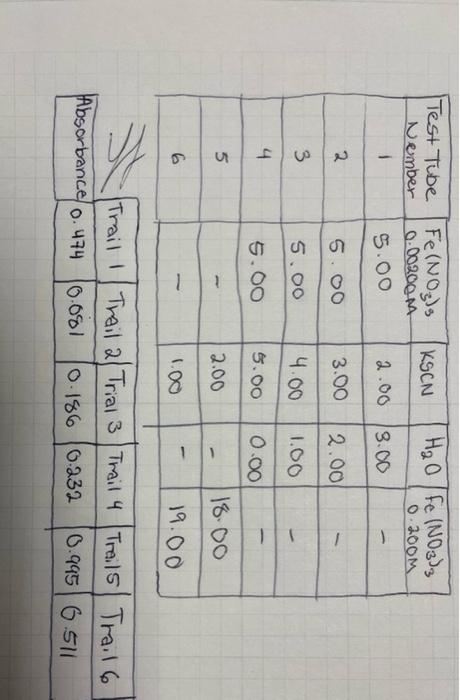 Test Tube Nember | Fe(NO3)3 0.00200M | KSCN | H2O | Fe(NO3)3 0.200M
1 | 5.00 | 2.00 | 3.00 | -
2 | 5.00 | 3.00 | 2.00 | -
3 | 5.00 | 4.00 | 1.00 | -
4 | 5.00 | 5.00 | 0.00 | -
5 | - | 2.00 | - | 18.00
6 | - | 1.00 | - | 19.00
Trail 1 | Trail 2 | Trial 3 | Trail 4 | Trail 5 | Trail 6
Absorbance | 0.474 | 0.081 | 0.186 | 0.232 | 0.995 | 0.511